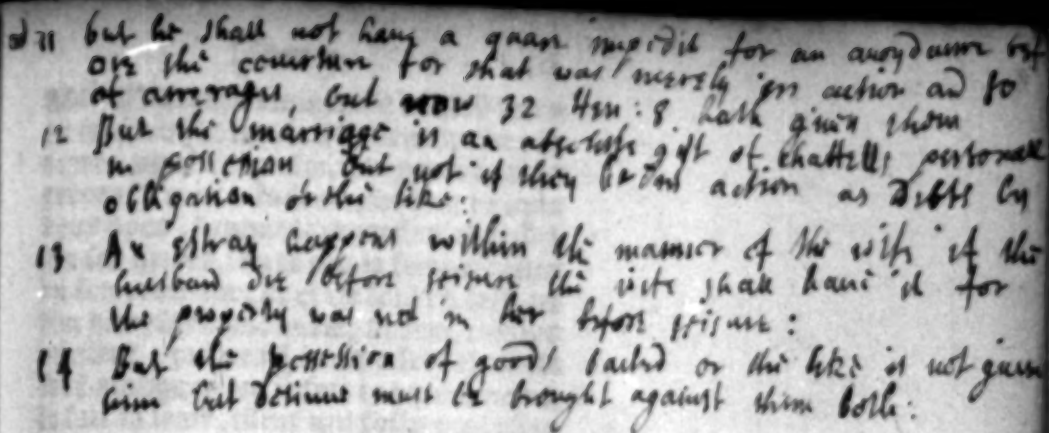 11 but he shall not have a quare impedit for an avoydance bef
ore the coverture for that was merely in action and so
of arrerages, but now 32 Hen: 8 hath given them
12 But the marriage is an absolute gift of chattells personall
in possession but not if they be in action as Debts by
obligation or the like:
13 An estray happens within the mannor of the wife if the
husband die before seisure the wife shall have it for
the property was not in her before seisure:
14 But the possession of goods bailed or the like is not given
him but detinue must be brought against them both: